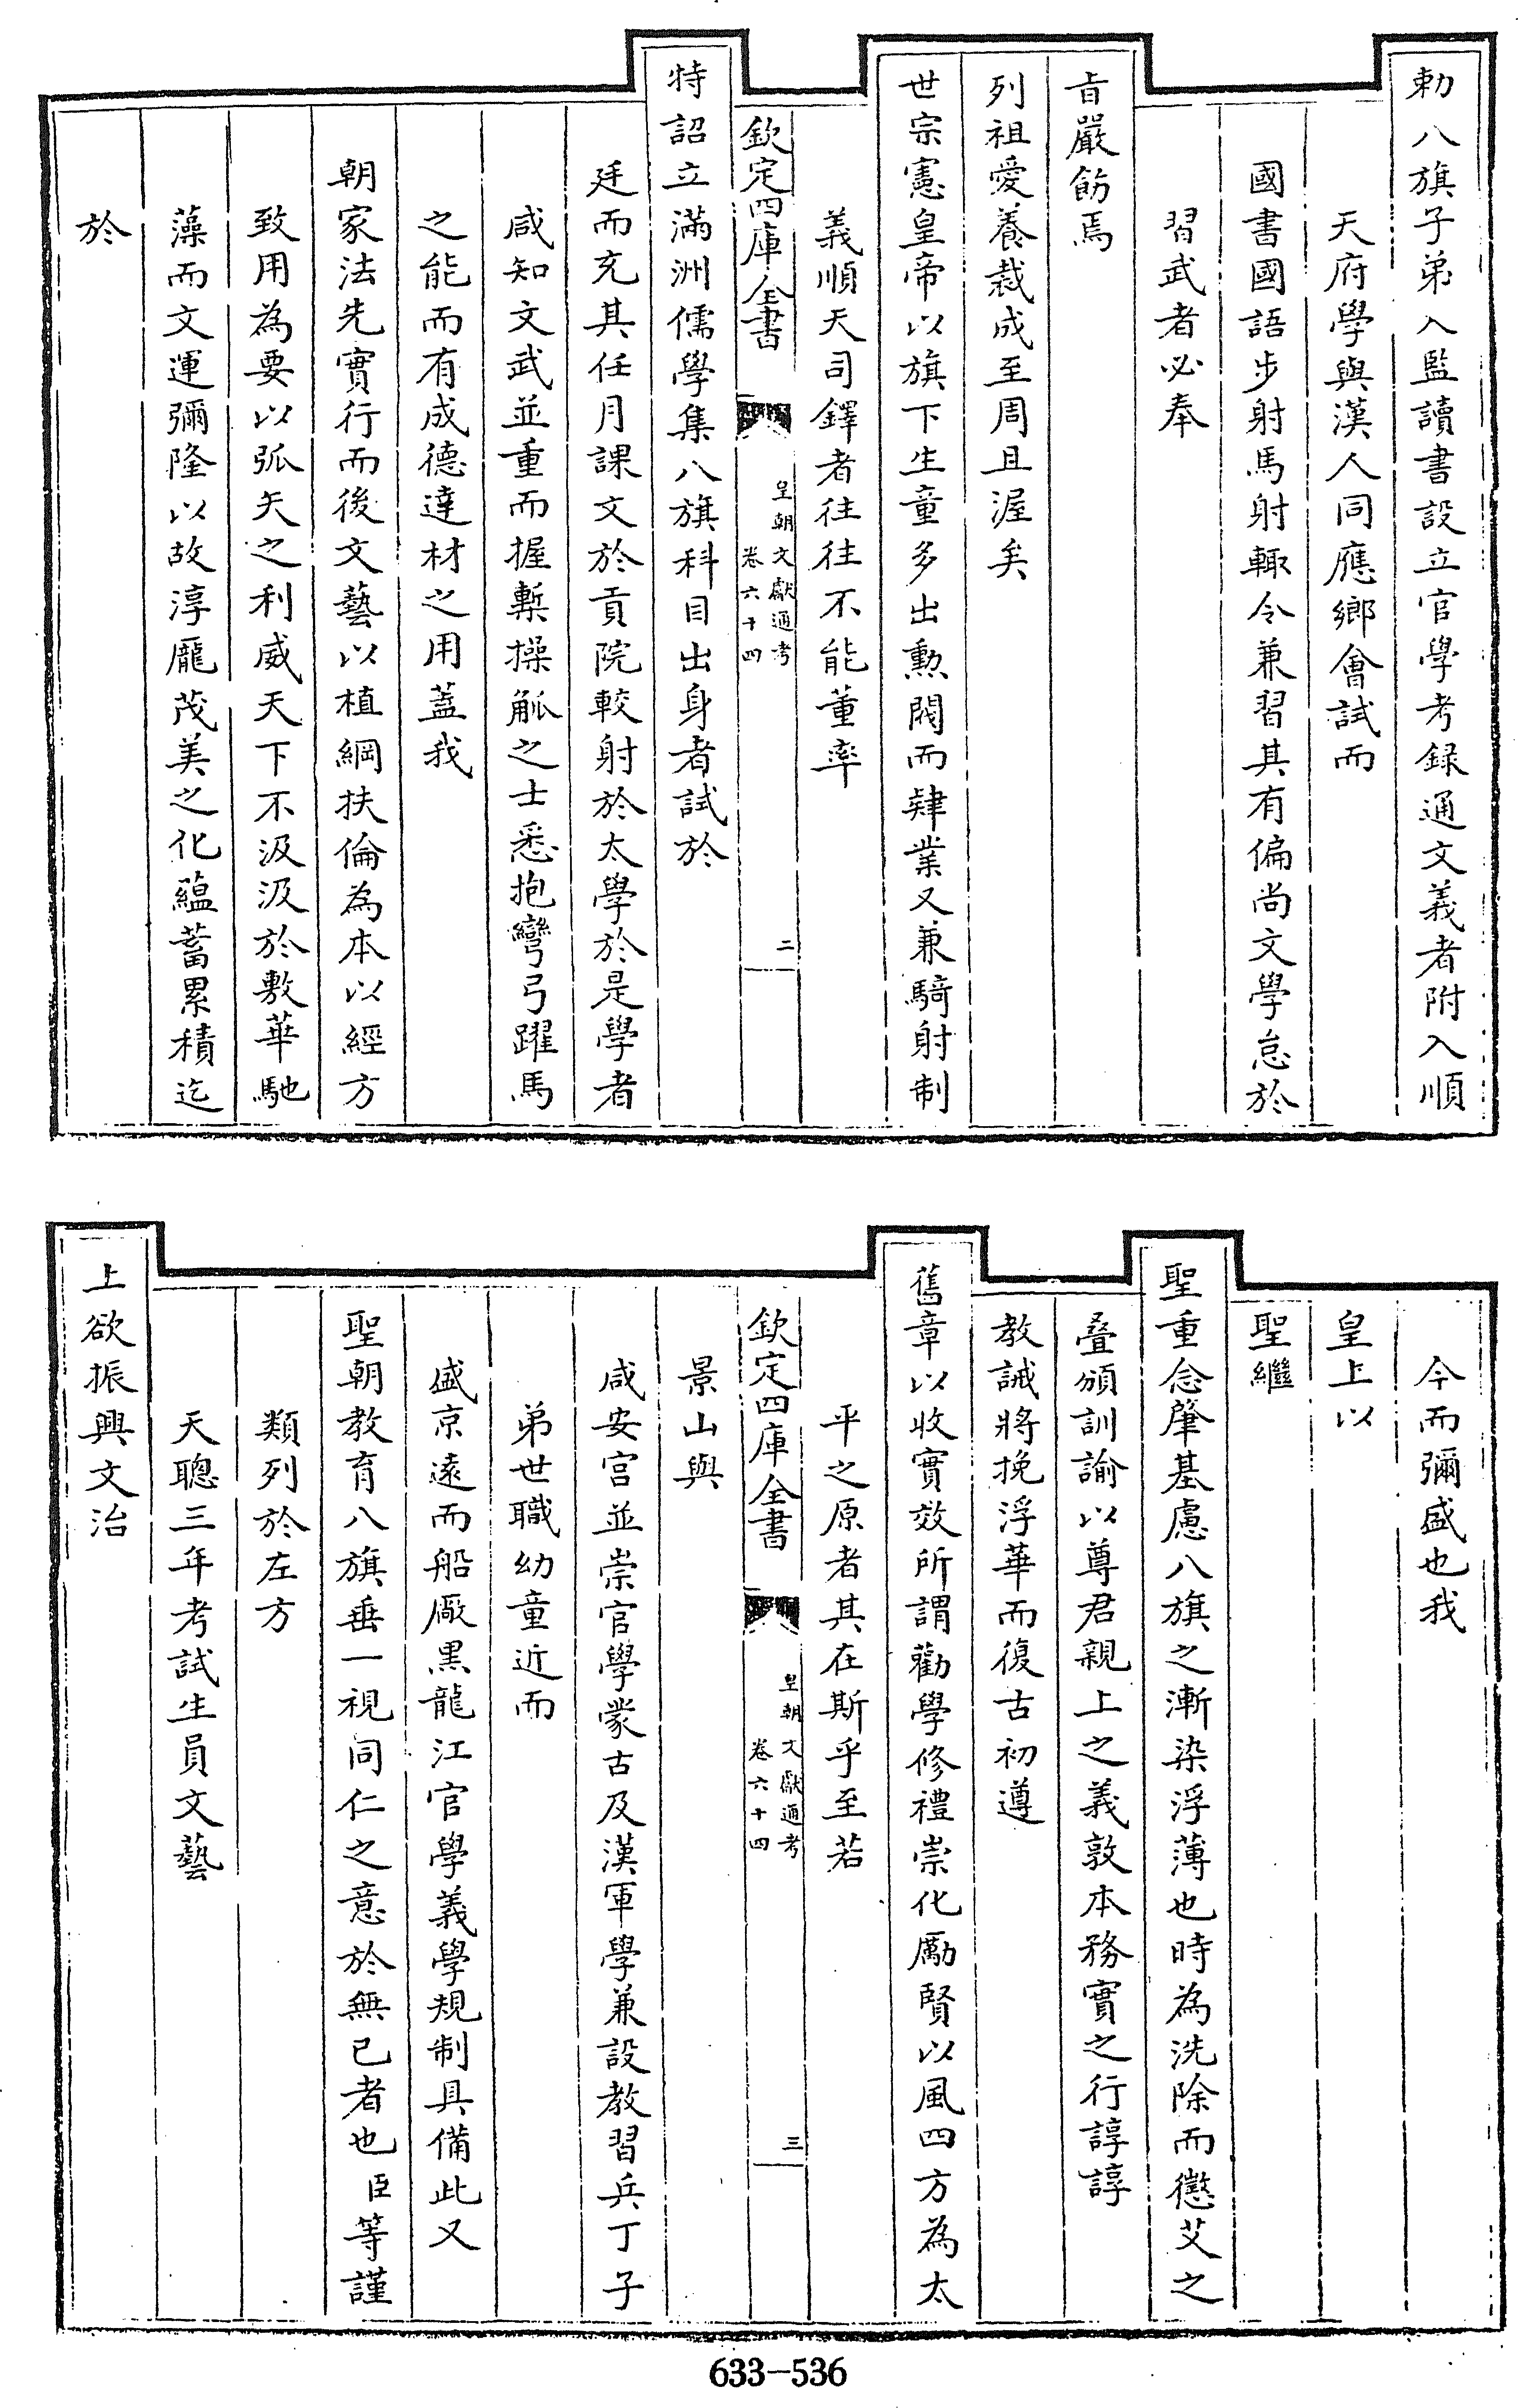 勅八旗子弟入監讀書設立官學考録通文義者附入順
天府學與漢人同應鄉會試而
國書國語步射馬射輙令兼習其有偏尚文學怠於
習武者必奉
㫖嚴飭焉
列祖愛養裁成至周且渥矣
世宗憲皇帝以旗下生童多出勲閥而肄業又兼騎射制
義順天司鐸者往往不能董率
欽定四庫全書
皇朝文獻通考
卷六十四
二
特詔立滿洲儒學集八旗科目出身者試於
廷而充其任月課文於貢院較射於太學於是學者
咸知文武並重而握槧操觚之士悉抱彎弓躍馬
之能而有成德達材之用蓋我
朝家法先實行而後文藝以植綱扶倫為本以經方
致用為要以弧矢之利威天下不汲汲於敷華馳
藻而文運彌隆以故淳龎茂美之化蘊蓄累積迄
於
今而彌盛也我
皇上以
聖繼
聖重念肇基慮八旗之漸染浮薄也時為洗除而懲艾之
叠頒訓諭以尊君親上之義敦本務實之行諄諄
教誡將挽浮華而復古初遵
舊章以收實效所謂勸學修禮崇化勵賢以風四方為太
平之原者其在斯乎至若
欽定四庫全書
皇朝文獻通考
卷六十四
三
景山與
咸安宫並崇官學蒙古及漢軍學兼設教習兵丁子
弟世職幼童近而
盛京遠而船厰黒龍江官學義學規制具備此又
聖朝教育八旗垂一視同仁之意於無已者也臣等謹
類列於左方
天聰三年考試生員文藝
上欲振興文治
633-536